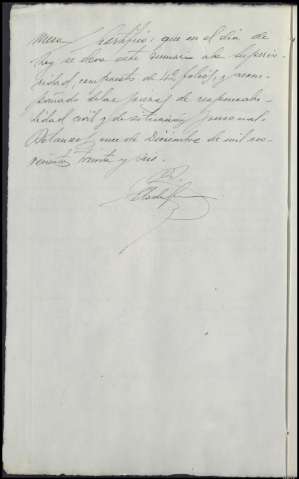 certifico: que en el día de
hoy se eleva este sumario a la Superio-
ridad, constando de 42 folios y acom-
pañado de las piezas de responsabi-
lidad civil y de situación personal.
Betanzos, once de Diciembre de mil no-
vecientos treinta y seis